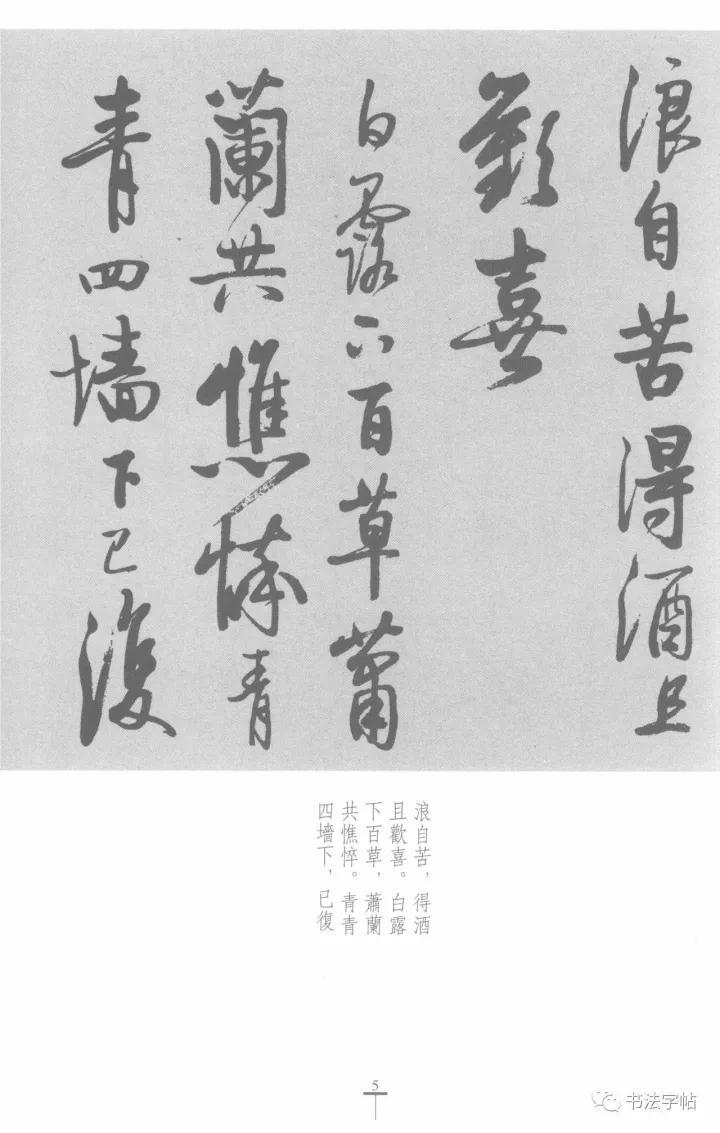 浪自苦得酒且
歡喜
白露下百草蕭
蘭共憔悴青
青四墻下已復
浪自苦，得酒
且歡喜。白露
下百草，蕭蘭
共憔悴。青青
四墻下，已復
5
书法字帖